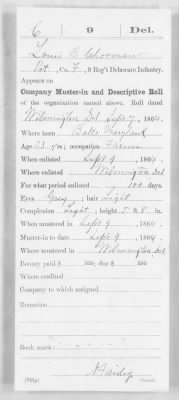 C 9 Del.
Louis B. Choosman
Pvt, Co. F, 9 Reg't Delaware Infantry.
Appears on
Company Muster-in and Descriptive Roll
of the organization named above. Roll dated
Wilmington Del Sept 9, 1864.
Where born Balto Maryland
Age 23 y'rs; occupation Farmer
When enlisted Sept 9, 1864.
Where enlisted Wilmington Del
For what period enlisted 100 days.
Eyes Grey; hair Light
Complexion Light; height 5 ft. 8 in.
When mustered in Sept 9, 1864.
Muster-in to date Sept 9, 1864.
Where mustered in Wilmington, Del
Bounty paid $ 100; due $ 100
Where credited
Company to which assigned
Remarks:
Book mark: